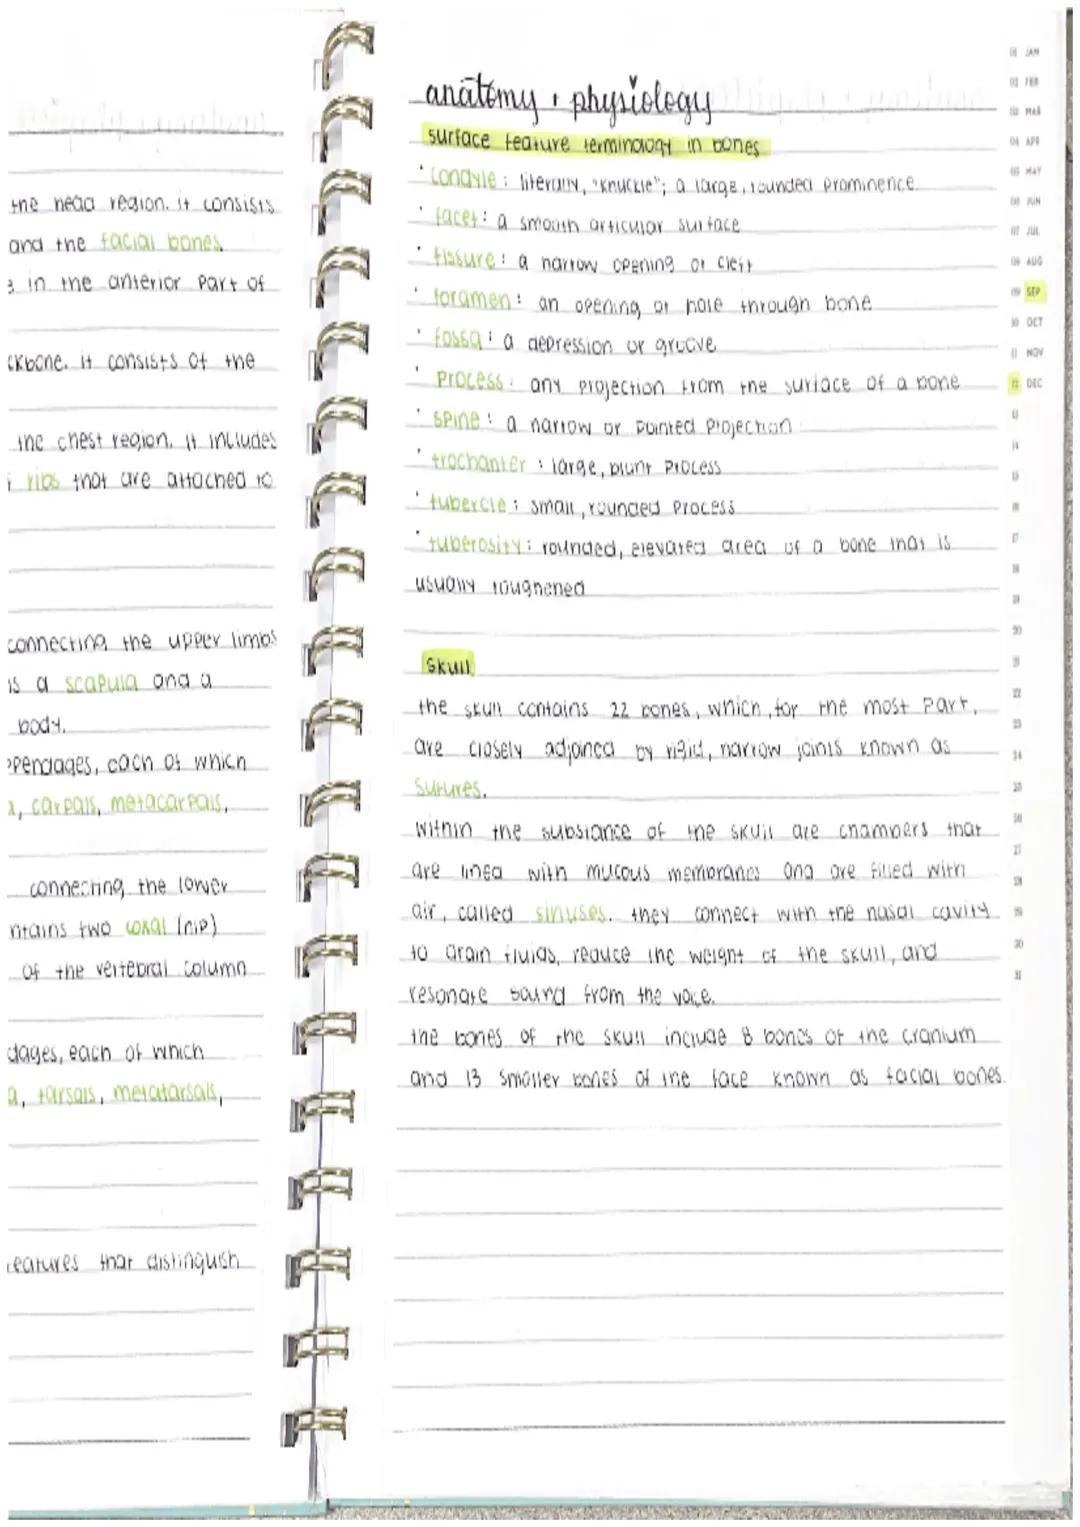 the head region. it consists
and the facial bones.
in the anterior part of
ckbone. it consists of the
the chest region. it includes
ribs that are attached to
connecting the upper limbs
is a scapula and a
body.
ppendages, each of which
a, carpals, metacarpals,
connecting the lower
ntains two coxal (hip)
of the vertebral column
dages, each of which
a, tarsals, metatarsals,
features that distinguish
anatomy + physiology
surface feature terminology in bones
· condyle : literally, "knuckle"; a large, rounded prominence
· facet : a smooth articular surface
· fissure : a narrow opening or cleft
· foramen : an opening or hole through bone
· fossa : a depression or groove
· process : any projection from the surface of a bone
· spine : a narrow or pointed projection
· trochanter : large, blunt process
· tubercle : small, rounded process
· tuberosity : rounded, elevated area of a bone that is
usually roughened
skull
the skull contains 22 bones, which, for the most part,
are closely adjoined by rigid, narrow joints known as
sutures.
within the substance of the skull are chambers that
are lined with mucous membranes and are filled with
air, called sinuses. they connect with the nasal cavity
to drain fluids, reduce the weight of the skull, and
resonate sound from the voice.
the bones of the skull include 8 bones of the cranium
and 13 smaller bones of the face known as facial bones.
01 JAN
02 FEB
03 MAR
04 APR
05 MAY
06 JUN
07 JUL
08 AUG
09 SEP
10 OCT
11 NOV
12 DEC
13
14
15
16
17
18
19
20
21
22
23
24
25
26
27
28
29
30
31